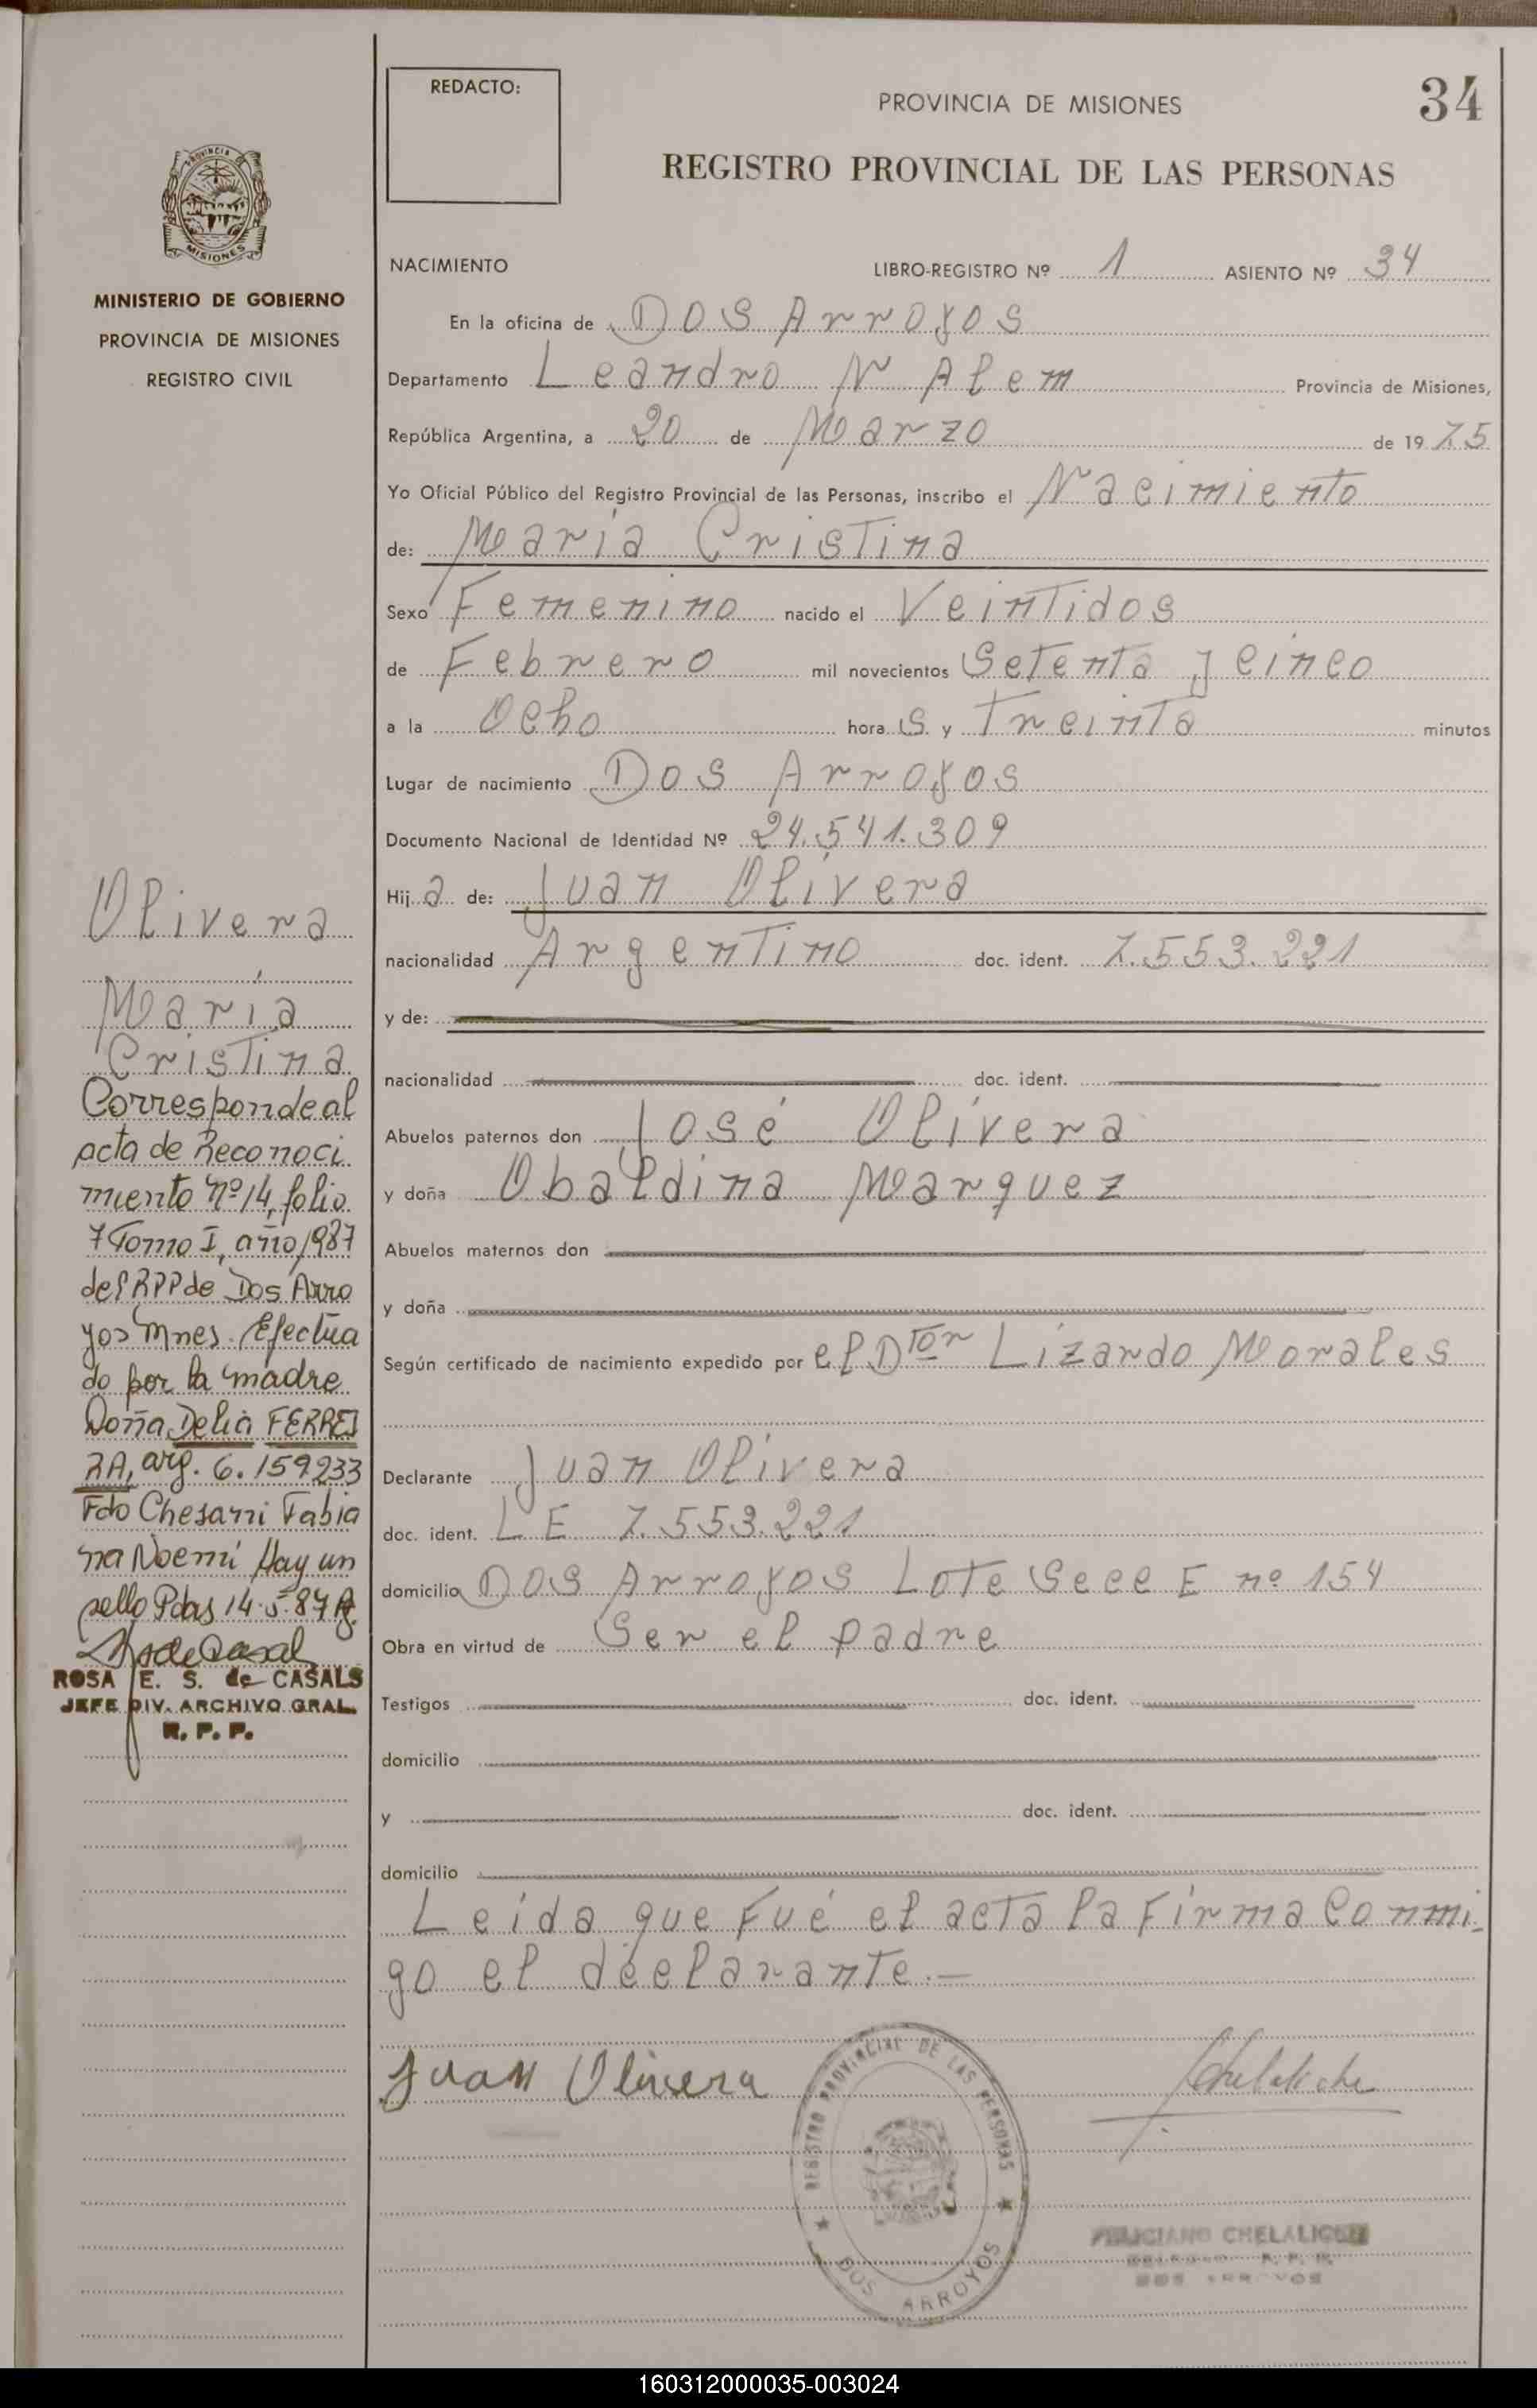 REDACTO:
PROVINCIA DE MISIONES
34
REGISTRO PROVINCIAL DE LAS PERSONAS
PROVINCIA DE
MISIONES
MINISTERIO DE GOBIERNO
PROVINCIA DE MISIONES
REGISTRO CIVIL
NACIMIENTO LIBRO-REGISTRO Nº 1 ASIENTO Nº 34
En la oficina de Dos Arroyos
Departamento Leandro N Alem Provincia de Misiones,
República Argentina, a 20 de Marzo de 1975
Yo Oficial Público del Registro Provincial de las Personas, inscribo el Nacimiento
de: María Cristina
Sexo Femenino nacido el Veintidos
de Febrero mil novecientos Setenta y cinco
a la Ocho hora s y Treinta minutos
Lugar de nacimiento Dos Arroyos
Documento Nacional de Identidad Nº 24.541.309
Hij a de: Juan Olivera
nacionalidad Argentino doc. ident. 7.553.221
y de:
nacionalidad doc. ident.
Abuelos paternos don José Olivera
y doña Obaldina Marquez
Abuelos maternos don
y doña
Según certificado de nacimiento expedido por el Dtor Lizando Morales
Declarante Juan Olivera
doc. ident. L E 7.553.221
domicilio Dos Arroyos Lote Secc E nº 154
Obra en virtud de Ser el padre
Testigos doc. ident.
domicilio
y doc. ident.
domicilio
Leída que fué el acta la firma conmi-
go el declarante.—
Juan Olivera
REGISTRO PROVINCIAL DE LAS PERSONAS
DOS ARROYOS
FELICIANO CHELALICHE
R. P. P.
DOS ARROYOS
Olivera
María
Cristina
Corresponde al
acta de Reconoci
miento nº 14, folio
7 Tomo I, año 1987
del RPP de Dos Arro
yos Mnes. Efectua
do por la madre
Doña Delia FERREI
RA, arg. 6.159233
Fdo Chesani Fabia
na Noemí Hay un
sello Pdas 14.5.87
ROSA E. S. de CASALS
JEFE DIV. ARCHIVO GRAL.
R. P. P.
160312000035-003024